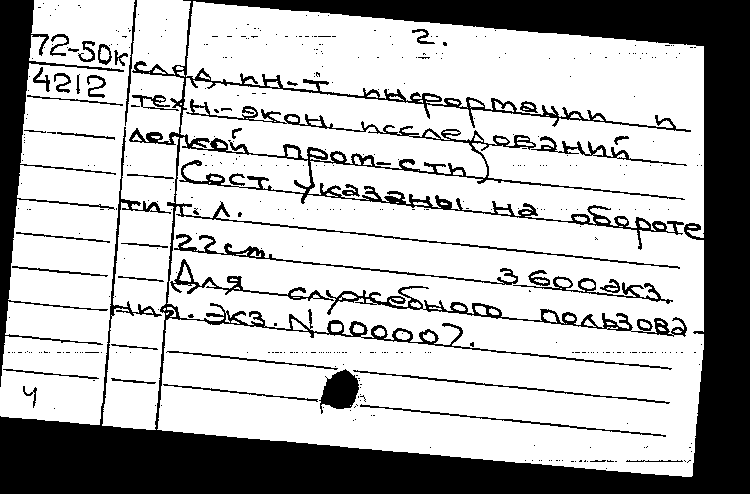 2.
72-50к
4212
след. ин-т информации и
техн.-экон. исследований
легкой пром-сти)
Сост. указаны на обороте
тит. л.
22 см.
3600 экз.
Для служебного пользова-
ния. Экз. N 000007.
4